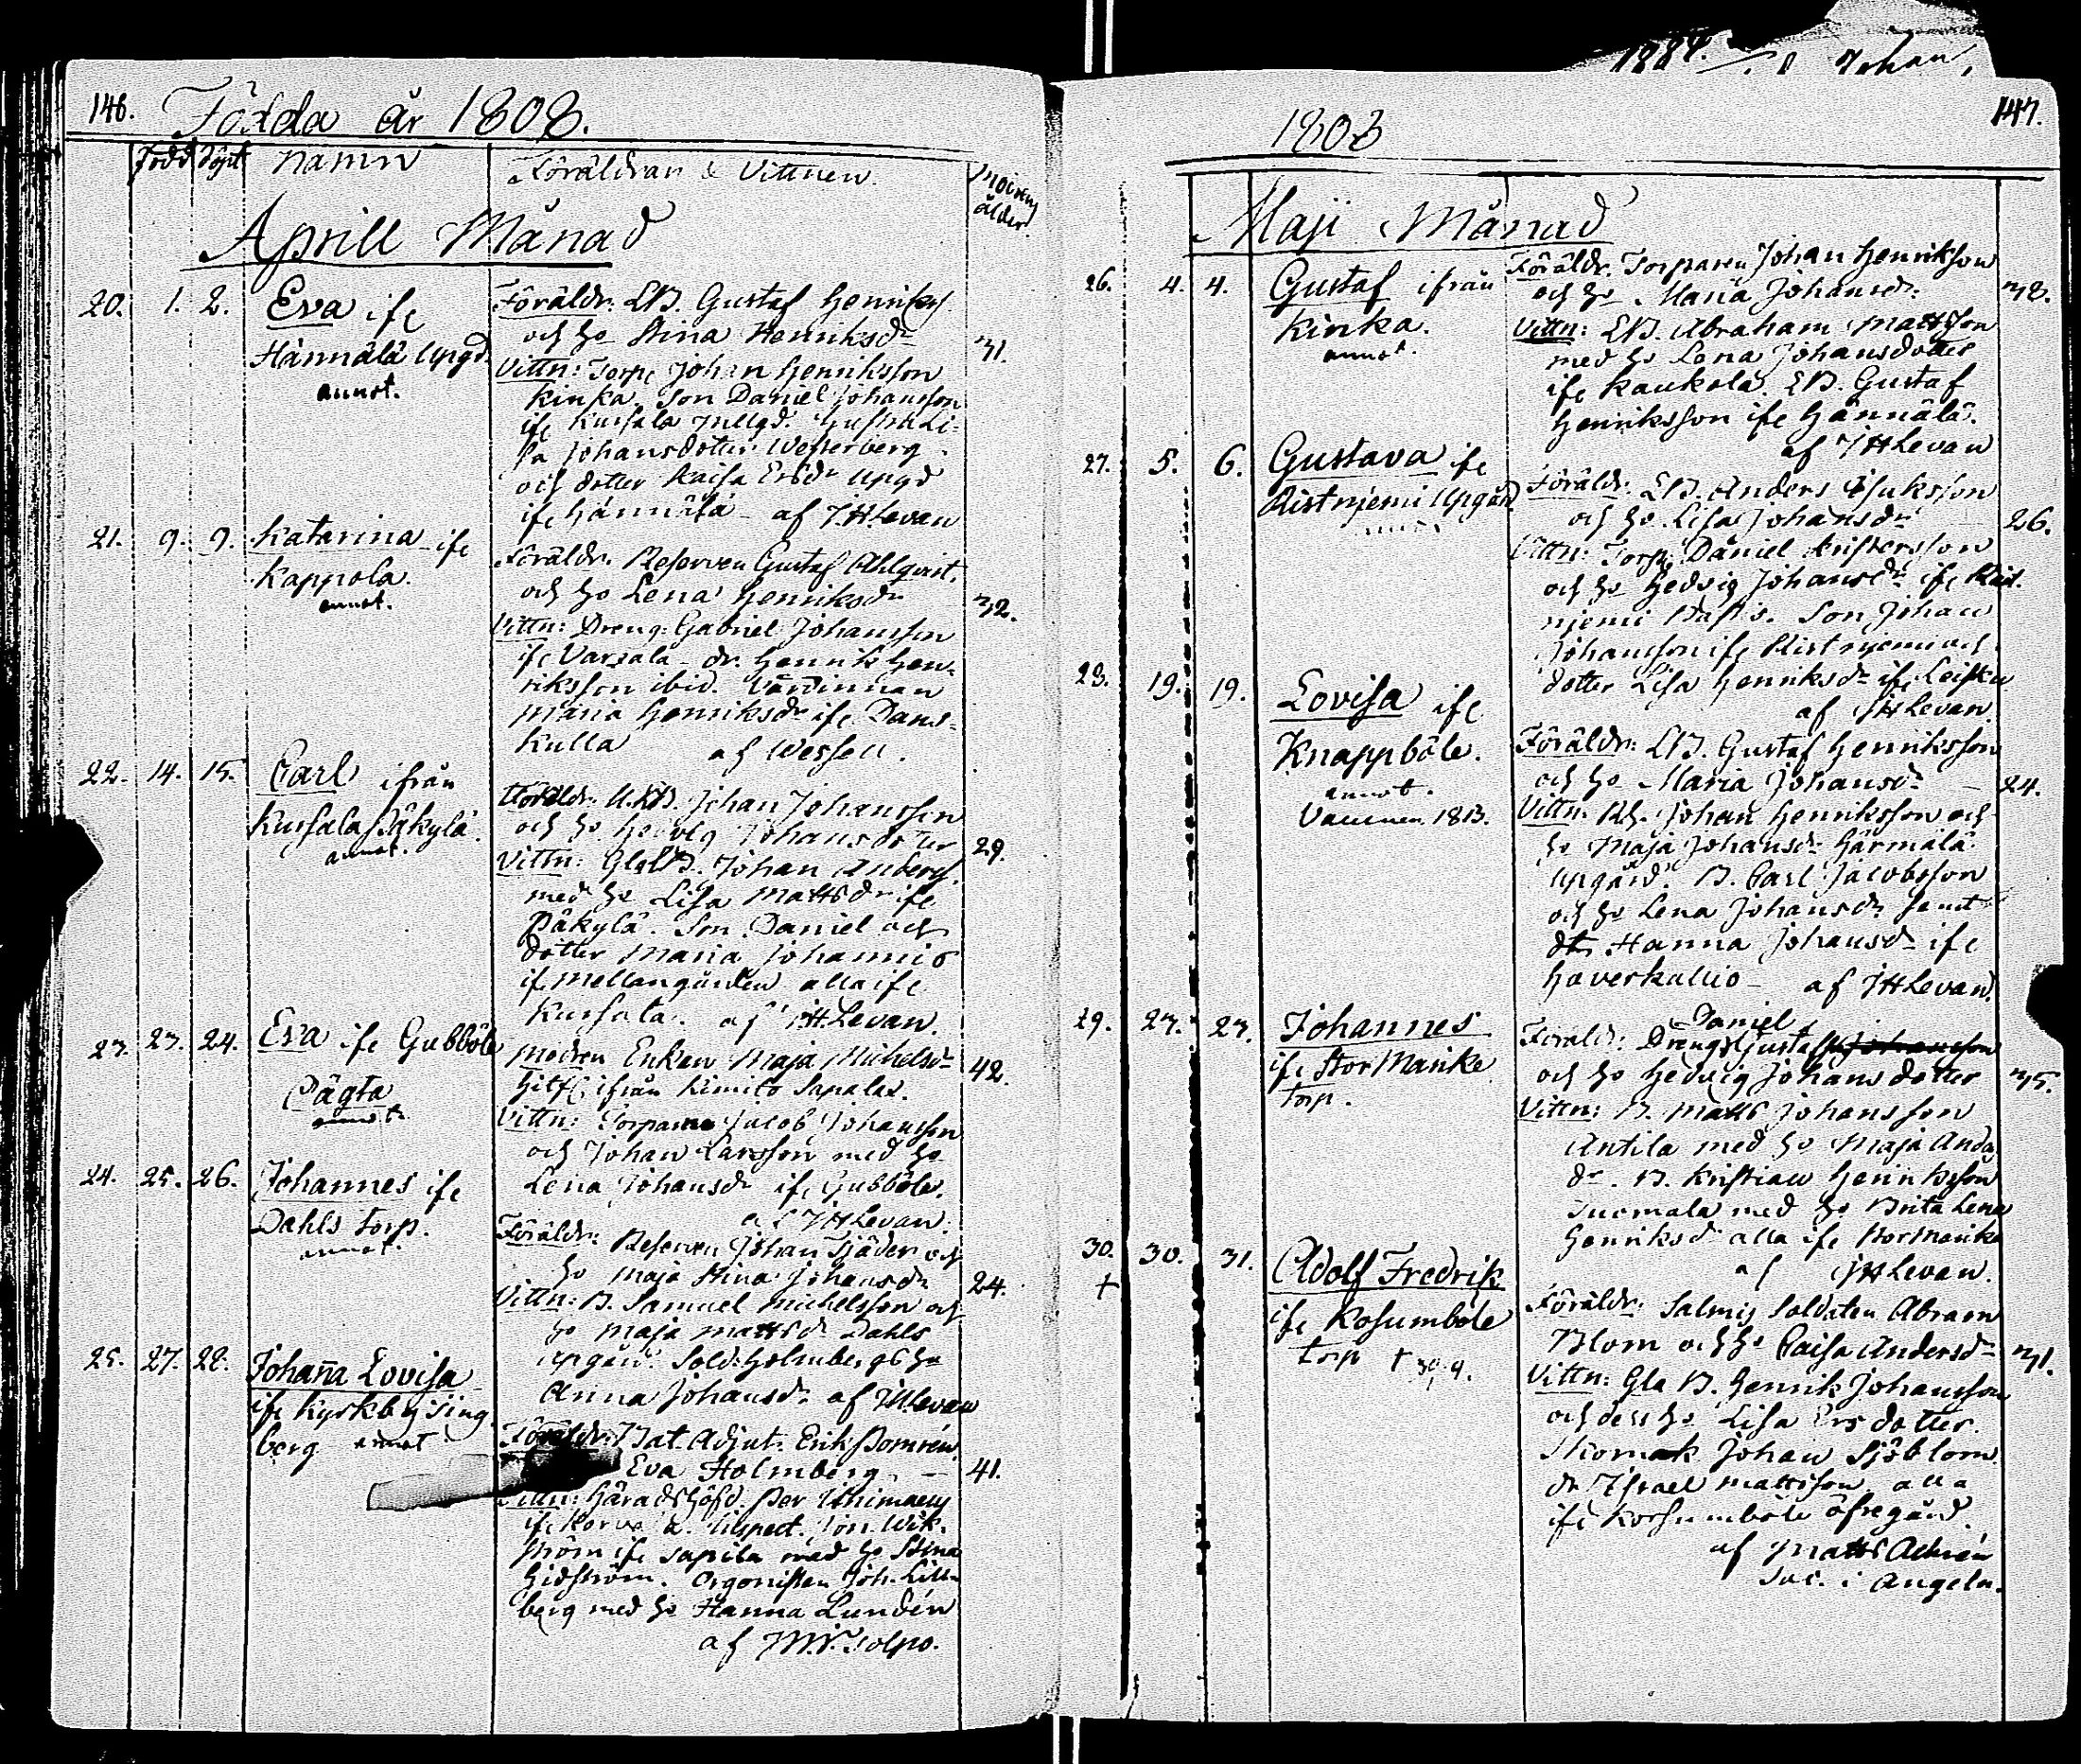 146. Födda år 1808.
Född Döpt Namn Föräldrar & Vittnen. Modrens ålder
Aprill Månad
20. 1. 2. Eva ife
Hännälä Upgd.
annot.
Föräldr. LB. Gustaf Henriksf
och ho Stina Henriksdr 31.
Vittn: Torp. Johan Henriksson
Kinka. Son Daniel Johansson
ife Kurfala Mellgd.
sa Johansdotter Westerberg.
och dotter Kaisa Ersdr Upgd
ife Hännälä af JHLevan
21. 9. 9. Katarina ife
Kappola.
annot.
Föräldr. Reserven Gustaf Ahlqvist.
och ho Lena Henriksdr 32.
Vittn: Dreng. Gabriel Johansson
ife Varsala - dr. Henrik Hen-
riksson ibid. Värdinnan
Maria Henriksdr ife Dans-
kulla af Wessell.
22. 14. 15. Carl ifrån
Kursala Päkylä.
annot.
Föräldr. Johan Johansson
och ho Hedvig Johansdotter 29.
Vittn: Johan Anberg.
med ho Lisa Mattsdr ife
Päkylä. Son Daniel och
dotter Maria Johannis
if. Mellangården alla ife
Kursala. af JHLevan.
23. 23. 24. Eva ife Gubböle
Oägta
annot.
Modren Enkan Maja Michelsdr 42.
Hitfl. ifrån Kimito Sapalax.
Vittn: Torparne Jacob Johansson
och Johan Larsson med ho
Lena Johansdr ife Gubböle.
af JHLevan.
24. 25. 26. Johannes ife
Dahls torp.
annot.
Föräldr: Reserven Johan Tjäder och
ho Maja Stina Johansdr 24.
Vittn: B. Samuel Michelsson och
ho Maja Mattsdr Dahls
Upgård. Sold: Holmbergs ho
Anna Johansdr af JHLevan
25. 27. 28. Johaña Lovisa
ife Kyrkby Sing
berg annot
Föräldr: Bat. Adjut. Erik Pomrén
Eva Holmberg. 41.
Vittn: Häradshöfd. Per Thimaeus
ife Inspect. Jon. Wik-
ström ife Sapila med ho Stina
Hidström. Organisten Joh. Lill-
berg med ho Hanna Lundén
af
1884. Johan,
147.
1808
Maji Månad
26. 4. 4. Gustaf ifrån
Kinka.
annot.
Föräldr. Torparen Johan Henriksson
och ho Maria Johansdr. 38.
Vittn: LB. Abraham Mattsson
med ho Lena Johansdotter
ife Kaukola. LB. Gustaf
Henriksson ife Hännälä.
af JHLevan
27. 5. 6. Gustava ife
Ristnjemi Upgård
Föräldr: LB. Anders Isuksson
och ho Lisa Johansdr 26.
Vittn: Torp. Daniel Kristersson
och ho Hedvig Johansdr ife Rist-
njemi Basis. Son Johan
Johansson ife Ristnjemi och
dotter Lisa Henriksdr ife Leisku
af JHLevan.
28. 19. 19. Lovisa ife
Knappböle.
annot.
Vaccinen 1813.
Föräldr: LB. Gustaf Henriksson
och ho Maria Johansdr 24.
Vittn. Rh. Johan Henriksson och
ho Maja Johansdr Härmälä
Upgård. B. Carl Jacobsson
och ho Lena Johansdr samt
Hanna Johansdr ife
Haverkallio - af JHLevan.
29. 23. 23. Johannes
ife Stor Manke
torp.
Daniel
Föräldr: Dreng Gustafs Johansson
och ho Hedvig Johansdotter 35.
Vittn: B. Matts Johansson
Antila med ho Maja Anders
dr. B. Kristian Henriksson
Suomala med ho Brita Lena
Henriksdr alla ife Stormanke
af JHLevan.
30. 30. 31. Adolf Fredrik
+
ife Kosumböle
torp † 30/9.
Föräldr: Salmis Soldaten Abram
Blom och ho Caisa Andersdr 31.
Vittn: Gla B. Henrik Johansson
och dess ho Lisa Ersdotter.
Skomak Johan Sjöblom
dr Israel Mattsson alla
ife Korsumböle öfregård.
af Matts Achrén
Sac. i Angeln.